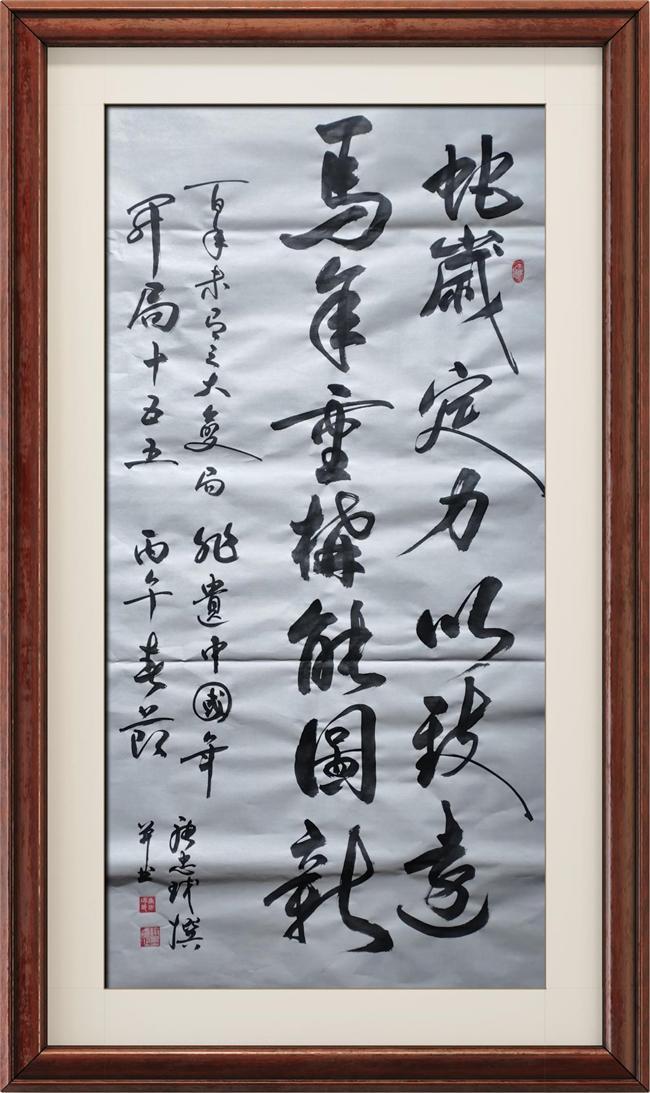 蛇歲定力以致遠
馬年重構能圖新
百年未有之大變局 非遺中國年
開局十五五 丙午春節
撰
并书